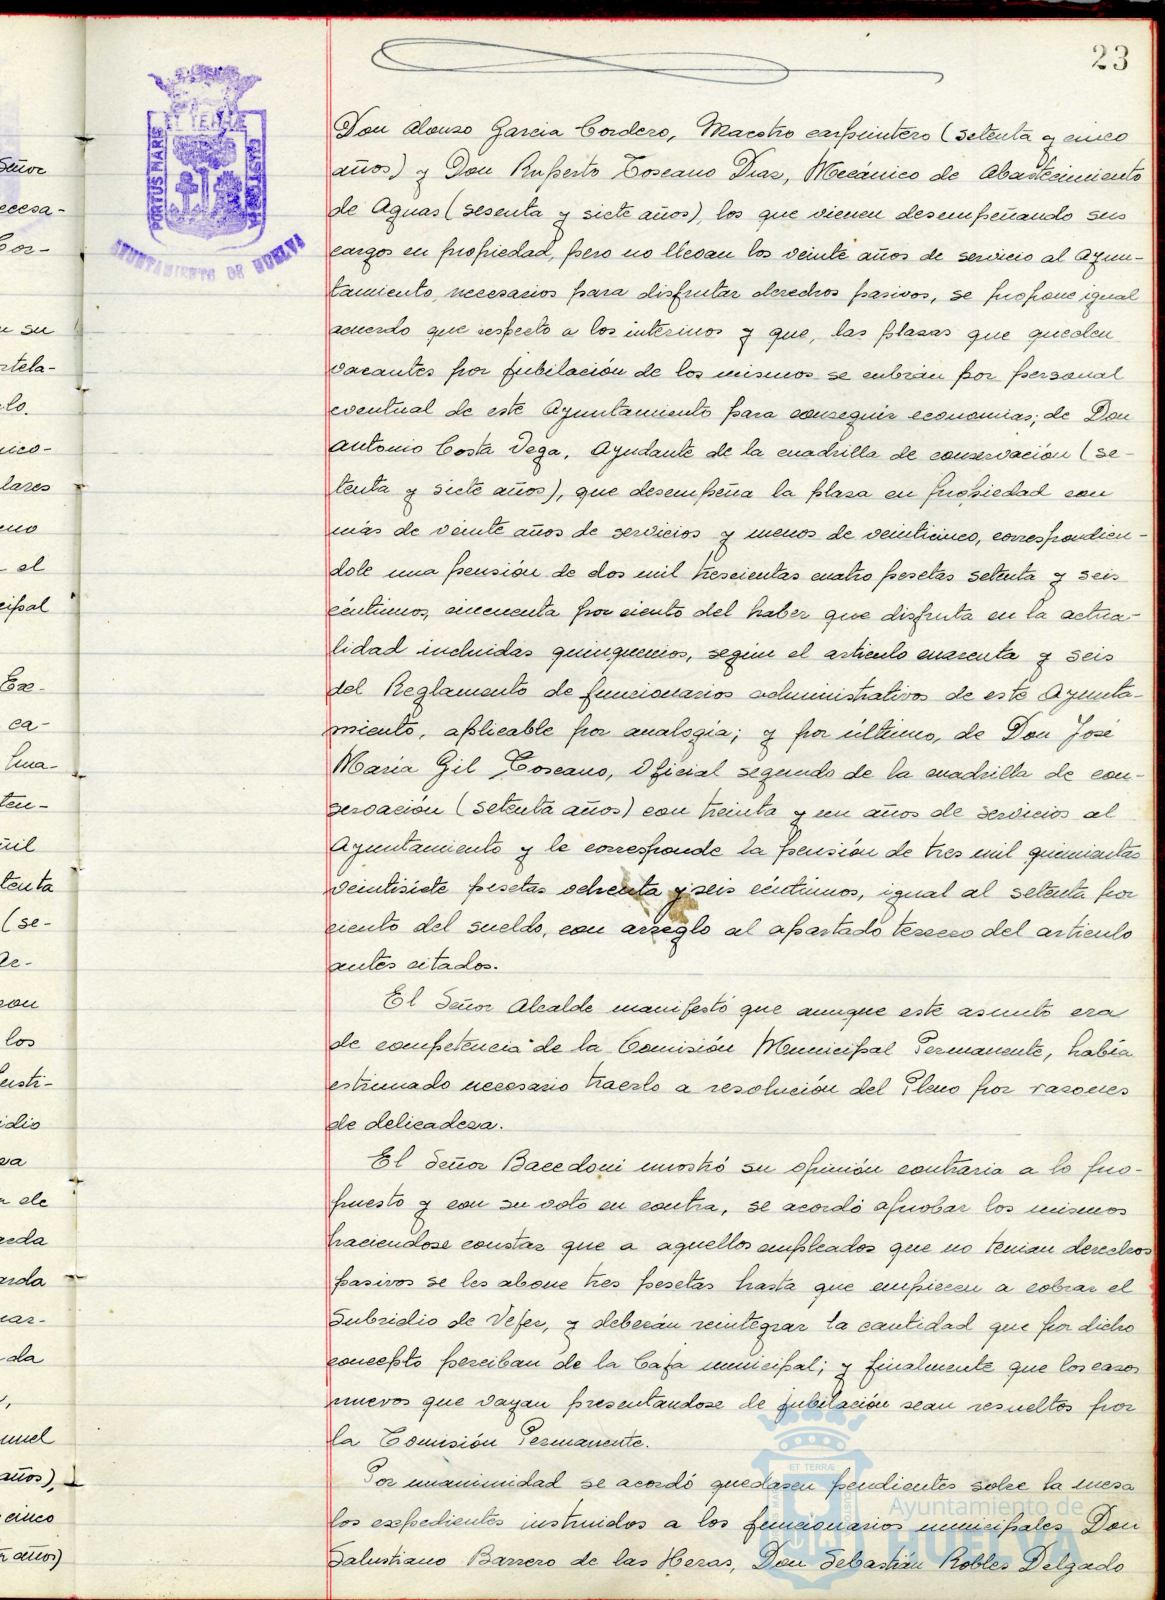 23
PORTUS MARIS
ET TERRAE
CUSTODIA
AYUNTAMIENTO DE HUELVA
Don Alonso Garcia Cordero, Maestro carpintero (setenta y cinco
años) y Don Ruperto Toscano Diaz, Mecánico de Abastecimiento
de Aguas (sesenta y siete años), los que vienen desempeñando sus
cargos en propiedad, pero no llevan los veinte años de servicio al Ayun-
tamiento, necesarios para disfrutar derechos pasivos, se propone igual
acuerdo que respecto a los interinos y que, las plazas que queden
vacantes por jubilación de los mismos se cubran por personal
eventual de este Ayuntamiento para conseguir economías; de Don
Antonio Costa Vega, Ayudante de la cuadrilla de conservación (se-
tenta y siete años), que desempeña la plaza en propiedad con
más de veinte años de servicios y menos de veinticinco, correspondien-
dole una pensión de dos mil trescientas cuatro pesetas setenta y seis
céntimos, cincuenta por ciento del haber que disfruta en la actua-
lidad incluidas quinquenios, según el articulo cuarenta y seis
del Reglamento de funcionarios administrativos de este Ayunta-
miento, aplicable por analogía; y por último, de Don José
María Gil Toscano, Oficial segundo de la cuadrilla de con-
servación (setenta años) con treinta y un años de servicios al
Ayuntamiento y le corresponde la pensión de tres mil quinientas
veintisiete pesetas ochenta y seis céntimos, igual al setenta por
ciento del sueldo, con arreglo al apartado tercero del articulo
antes citados.
El Señor Alcalde manifestó que aunque este asunto era
de competencia de la Comisión Municipal Permanente, había
estimado necesario traerlo a resolución del Pleno por razones
de delicadeza.
El Señor Bacedoni mostró su opinión contraria a lo pro-
puesto y con su voto en contra, se acordó aprobar los mismos
haciendose constar que a aquellos empleados que no tenian derechos
pasivos se les abone tres pesetas hasta que empiecen a cobrar el
Subsidio de Vejez, y deberán reintegrar la cantidad que por dicho
concepto perciban de la Caja municipal; y finalmente que los casos
nuevos que vayan presentandose de jubilación sean resueltos por
la Comisión Permanente.
Por unanimidad se acordó quedasen pendientes sobre la mesa
los expedientes instruidos a los funcionarios municipales Don
Salustiano Barrero de las Heras, Don Sebastián Robles Delgado
Ayuntamiento de
HUELVA